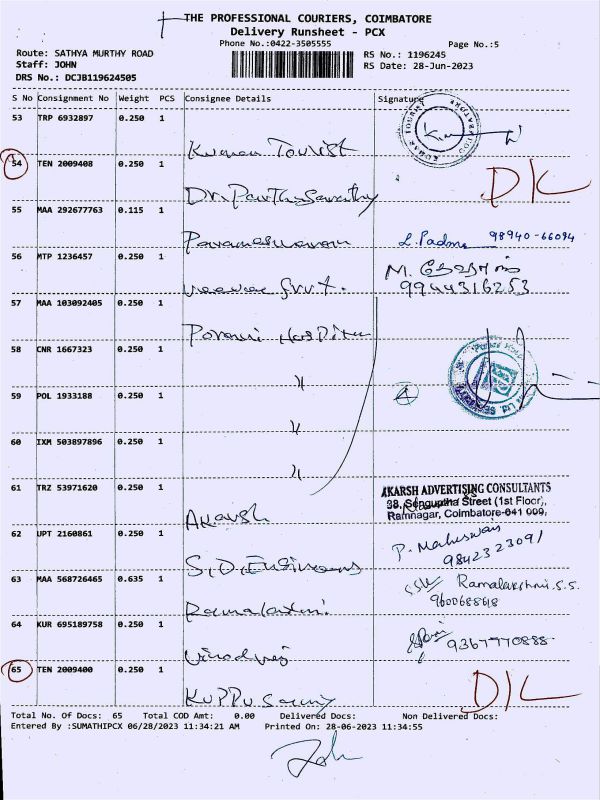 THE PROFESSIONAL COURIERS, COIMBATORE
Delivery Runsheet - PCX
Phone No.:0422-3505555 Page No.:5
Route: SATHYA MURTHY ROAD RS No.: 1196245
Staff: JOHN RS Date: 28-Jun-2023
DRS No.: DCJB119624505
S No Consignment No Weight PCS Consignee Details Signature
53 TRP 6932897 0.250 1
Kumaran Tourist
54 TEN 2009408 0.250 1 D/L
Dr. Parthasarathy
55 MAA 292677763 0.115 1
Parameswaram L. Padma 98940-66094
56 MTP 1236457 0.250 1 M.
9944316253
57 MAA 103092405 0.250 1
Porani Hospital
58 CNR 1667323 0.250 1
〃
59 POL 1933188 0.250 1 4
〃
60 IXM 503897896 0.250 1
〃
61 TRZ 53971620 0.250 1 AKARSH ADVERTISING CONSULTANTS
38, Senguptha Street (1st Floor),
Ramnagar, Coimbatore-641 009.
Akarsh
62 UPT 2160861 0.250 1 P. Maheswari
9842323091
S.D. Engineers
63 MAA 568726465 0.635 1 Ramalakshmi.S.S.
9600688618
Ramalaxmi
64 KUR 695189758 0.250 1 9367770888
65 TEN 2009400 0.250 1 D/L
Kuppusamy
Total No. Of Docs: 65 Total COD Amt: 0.00 Delivered Docs: Non Delivered Docs:
Entered By :SUMATHIPCX 06/28/2023 11:34:21 AM Printed On: 28-06-2023 11:34:55
John